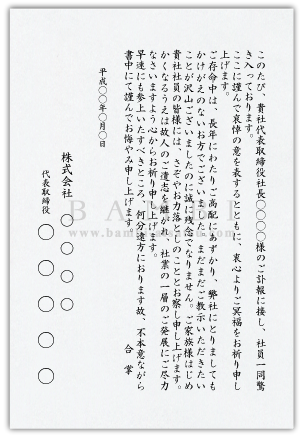 このたび、貴社代表取締役社長〇〇〇〇様のご訃報に接し、社員一同驚
き入っております。
ここに謹んで哀悼の意を表するとともに、衷心よりご冥福をお祈り申し
上げます。
ご存命中は、長年にわたりご高配にあずかり、弊社にとりましても
かけがえのないお方でございました。まだまだご教示いただきたい
ことが沢山ございましたのに誠に残念でなりません。ご家族様はじめ
貴社社員の皆様には、さぞやお力落としのこととお察し申し上げます。
かくなるうえは故人のご遺志を継がれ、社業の一層のご発展にご尽力
なさいますよう心からお祈り申し上げます。
早速にも参上いたすべきところ、何分遠方におります故、不本意ながら
書中にて謹んでお悔やみ申し上げます。
合掌
平成〇〇年〇月〇日
株式会社 〇〇〇〇
代表取締役 〇〇〇〇